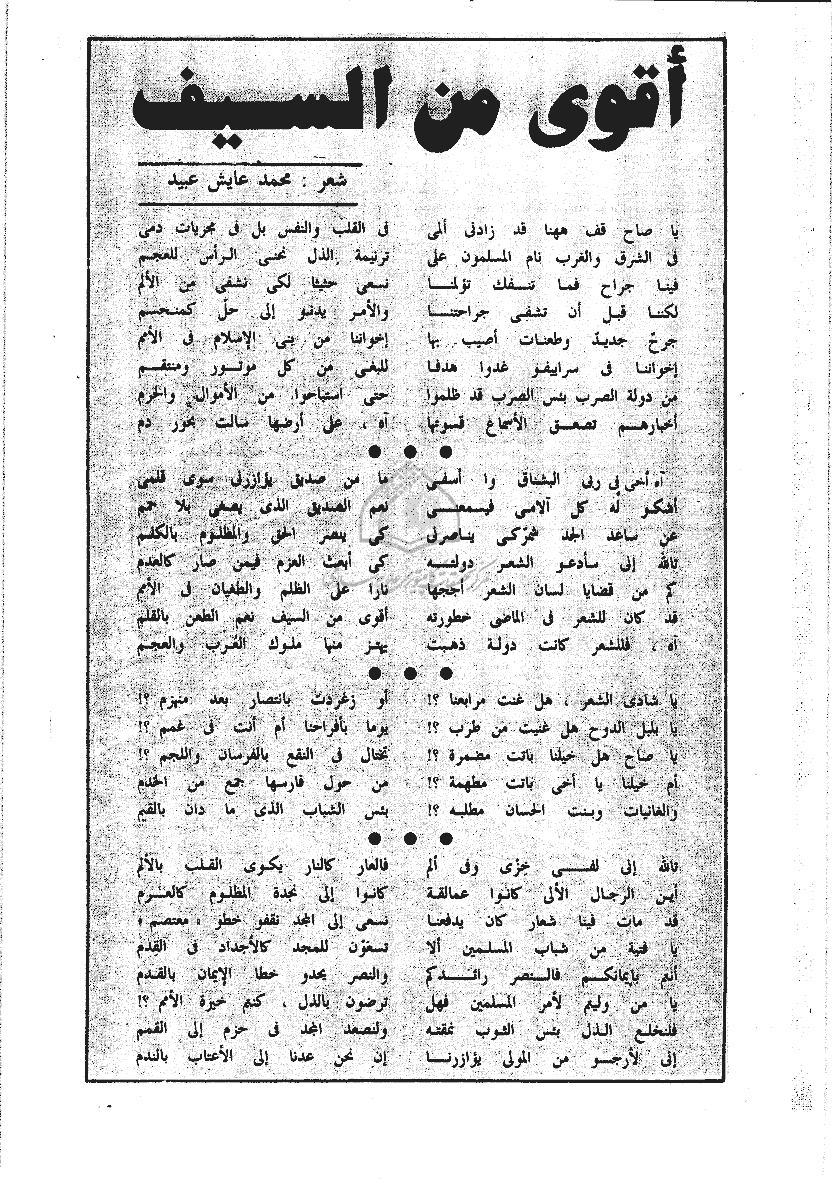 أقوى من السيف
شعر : محمد عايش عبيد
يا صاح قف ههنا قد زادنى ألمى فى القلب والنفس بل فى مجريات دمى
فى الشرق والغرب نام المسلمون على ترنيمة الذل نحنى الرأس للعجم
فينا جراح فما تنفك تؤلمنا نسعى حثيثا لكى نشفى من الألم
لكننا قبل أن تشفى جراحتنا والأمر يدنو إلى حلّ كمنحسم
جرحٌ جديدٌ وطعنات أصيب بها إخواننا من بنى الإسلام فى الأمم
إخواننا فى سراييفو غدوا هدفا للبغى من كل موتور ومنتقم
من دولة الصرب بئس الصرب قد ظلموا حتى استباحوا من الأموال والحرم
أخبارهم تصعق الأسماع قسوتها آه ، على أرضها سالت بحور دم
آه أخى فى ربى البشناق وا أسفى ما من صديق يؤازرنى سوى قلمى
أشكو له كل آلامى فيسمعنى نعم الصديق الذى يصغى بلا
عن ساعد الجد شمّركى يناصرنى كى ينصر الحق والمظلوم بالكلم
تالله إنى سأدعو الشعر دولته كى أبعث العزم فيمن صار كالعدم
كم من قضايا لسان الشعر أججها نارا على الظلم والطغيان فى الأمم
قد كان للشعر فى الماضى خطورته أقوى من السيف نعم الطعن بالقلم
آه ، فللشعر كانت دولة ذهبت يهتز منها ملوك العرب والعجم
يا شادى الشعر ، هل غنت مرابعنا ؟! أو زغردت بانتصار بعد منهزم ؟!
يا بلبل الدوح هل غنيت من طرب ؟! يوما بأفراحنا أم أنت فى غمم ؟!
يا صاح هل خيلنا باتت مضمرة ؟! تختال فى النقع بالفرسان واللجم ؟!
أم خيلنا يا أخى باتت مطهمة ؟! من حول فارسها جمع من الخدم
والغانيات وبنت الحسان مطلبه ؟! بئس الشباب الذى ما دان بالقيم
تالله إنى لفى خزى وفى ألم فالعار كالنار يكوى القلب بالألم
أين الرجال الألى كانوا عمالقة كانوا إلى نجدة المظلوم كالعرم
قد مات فينا شعار كان يدفعنا نسعى إلى المجد نقفو خطو « معتصم »
يا فتية من شباب المسلمين ألا تسعَوْن للمجد كالأجداد فى القِدم
أنتم بإيمانكم فالنصر رائدكم والنصر يحدو خطا الإيمان بالقدم
يا من وليتم لأمر المسلمين فهل ترضون بالذل ، كنتم خيرة الأمم ؟!
فلنخلع الذل بئس الثوب نمقته ولنصعد المجد فى حزم إلى القمم
إنى لأرجو من المولى يؤازرنا إن نحن عدنا إلى الأعتاب بالندم